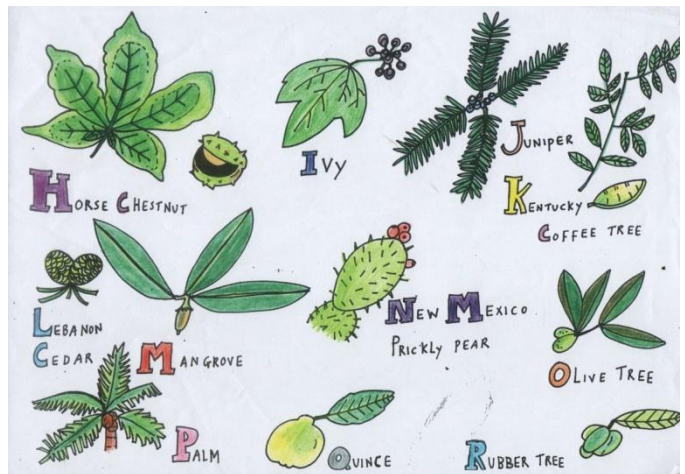 IVY
JUNIPER
HORSE CHESTNUT
KENTUCKY
COFFEE TREE
LEBANON
CEDAR
MANGROVE
NEW MEXICO
PRICKLY PEAR
OLIVE TREE
PALM
QUINCE
RUBBER TREE